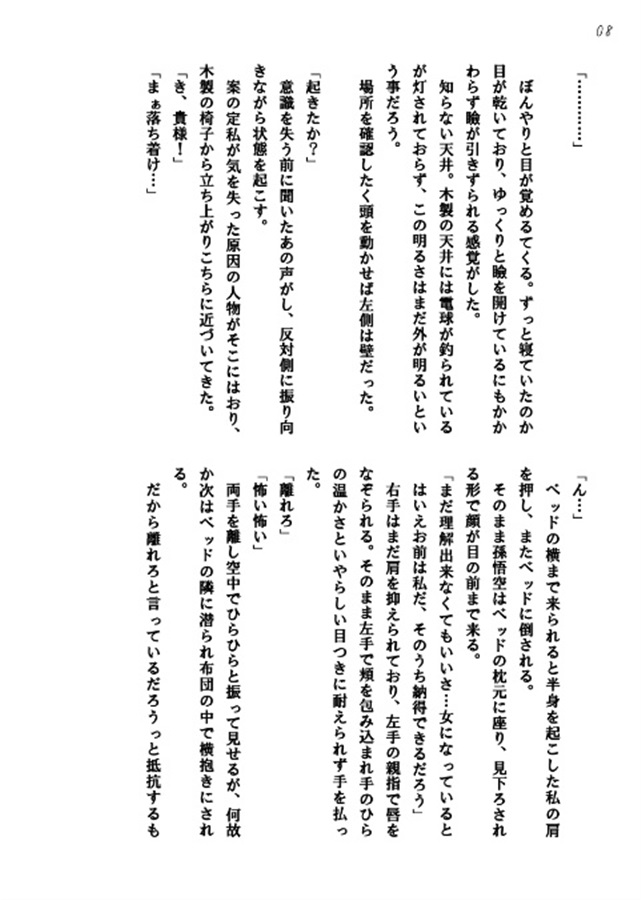 08
「…………」
ぼんやりと目が覚めるてくる。ずっと寝ていたのか
目が乾いており、ゆっくりと瞼を開けているにもかか
わらず瞼が引きずられる感覚がした。
知らない天井。木製の天井には電球が釣られている
が灯されておらず、この明るさはまだ外が明るいとい
う事だろう。
場所を確認したく頭を動かせば左側は壁だった。
「起きたか？」
意識を失う前に聞いたあの声がし、反対側に振り向
きながら状態を起こす。
案の定私が気を失った原因の人物がそこにはおり、
木製の椅子から立ち上がりこちらに近づいてきた。
「き、貴様！」
「まぁ落ち着け…」
「ん…」
ベッドの横まで来られると半身を起こした私の肩
を押し、またベッドに倒される。
そのまま孫悟空はベッドの枕元に座り、見下ろされ
る形で顔が目の前まで来る。
「まだ理解出来なくてもいいさ…女になっていると
はいえお前は私だ、そのうち納得できるだろう」
右手はまだ肩を抑えられており、左手の親指で唇を
なぞられる。そのまま左手で頬を包み込まれ手のひら
の温かさといやらしい目つきに耐えられず手を払っ
た。
「離れろ」
「怖い怖い」
両手を離し空中でひらひらと振って見せるが、何故
か次はベッドの隣に潜られ布団の中で横抱きにされ
る。
だから離れろと言っているだろうっと抵抗するも